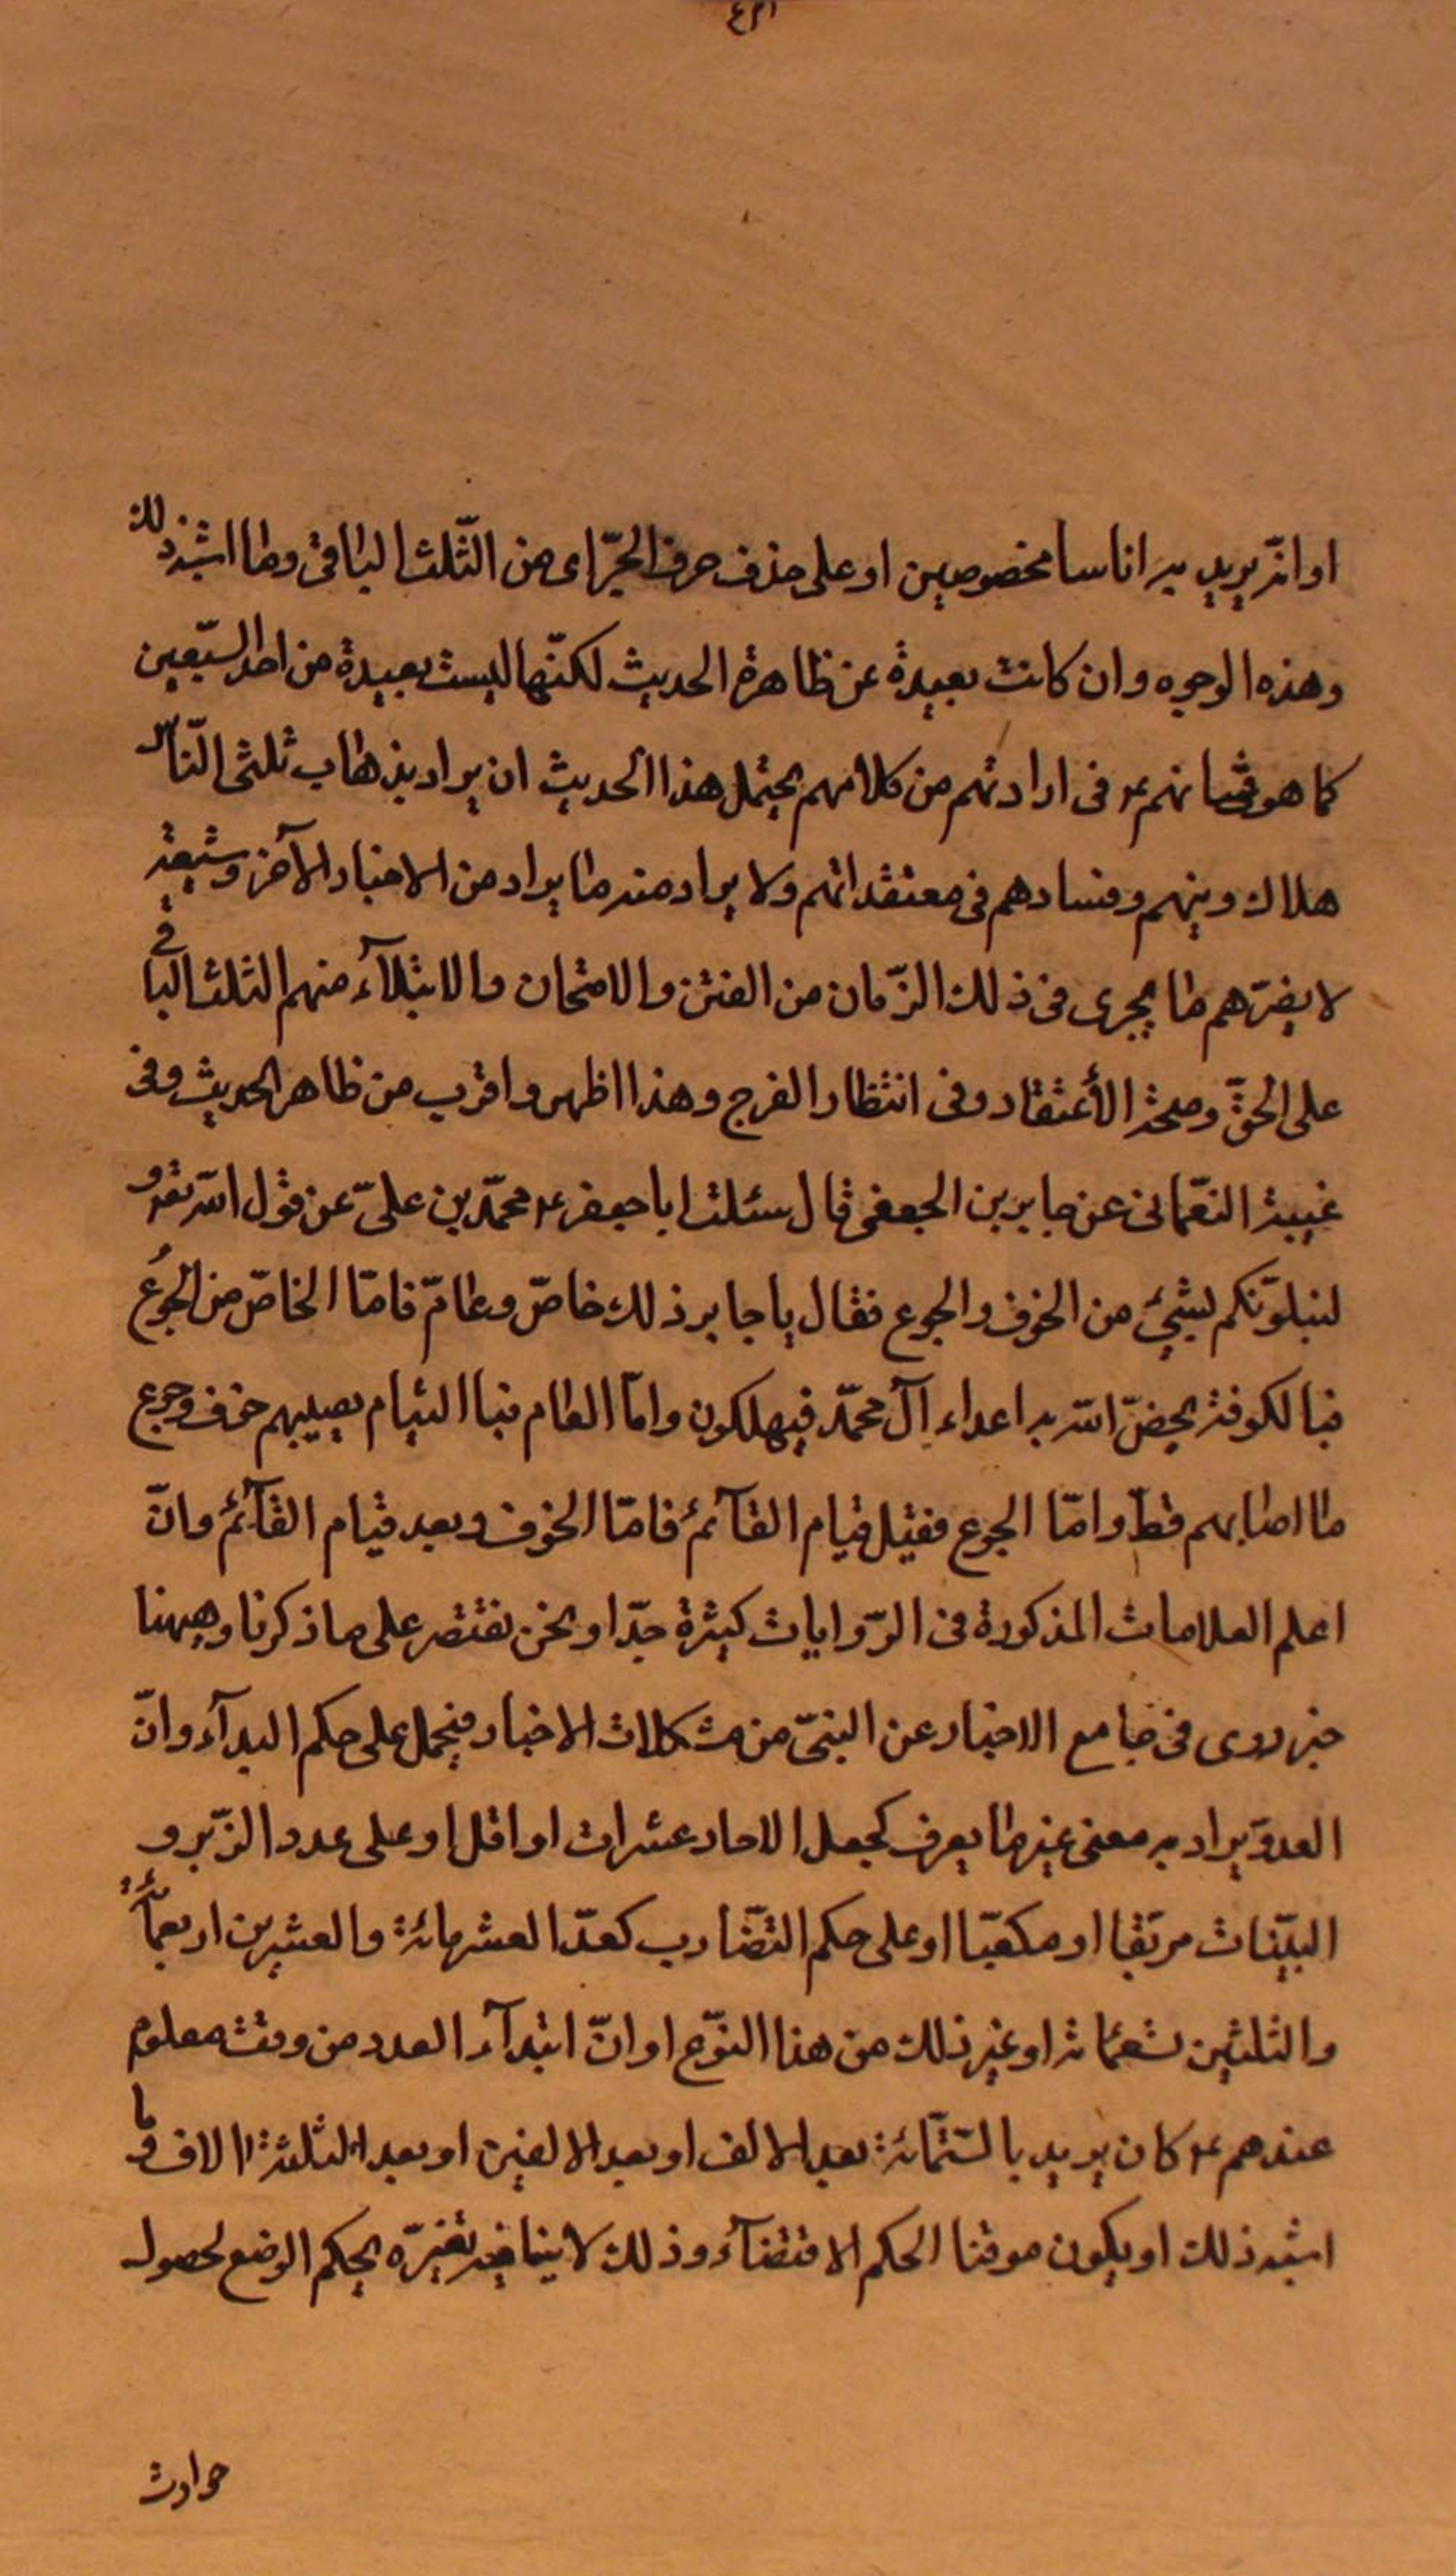 او انّه يريد به اناسا مخصوصين او على حذف حرف الجرّ اى من الثّلث الباقى وما اشبه ذلك
وهذه الوجوه وان كانت بعيدة عن ظاهرة الحديث لكنّها ليست بعيدة من احد السّبعين
كما هو شانهم ع فى ارادتهم من كلامهم يحتمل هذا الحديث ان يراد بذهاب ثلثى النّاس
هلاك دينهم وفسادهم فى معتقداتهم ولا يراد منه ما يراد من الاخبار الآخر وشيعته
لا يضرّهم ما يجرى فى ذلك الزّمان من الفتن والامتحان والابتلآء منهم الثلث الباقى
على الحقّ وصحة الأعتقاد وفى انتظار الفرج وهذا اظهر واقرب من ظاهر الحديث وفى
غيبة النعّمانى عن جابر بن الجعفى قال سئلت ابا جعفر ع محمّد بن علىّ عن قول اللّه تع و
لنبلوّنكم بشيئ من الخوف والجوع فقال يا جابر ذلك خاصّ وعامّ فامّا الخاصّ من الجوع
فبالكوفة يخصّ اللّه به اعداء آل محمّد فيهلكون وامّا العام فبا الشام يصيبهم خوف وجوع
ما اصابهم قطّ وامّا الجوع فقبل قيام القآئم فامّا الخوف وبعد قيام القآئم وانّ
اعلم العلامات المذكورة فى الرّوايات كثيرة جدّا ونحن نقتصر على ما ذكرنا وهيهنا
خبر روى فى جامع الاخبار عن النبىّ من مشكلات الاخبار فيحمل على حكم البدآء وانّ
العدوّ يراد به معنى غير ما يعرف كجعل الاحاد عشرات او اقل او على عدد الزّبر و
البيّنات مربّعا او مكعبّا او على حكم التضّارب كعدّ العشر مائة والعشرين اربعمأة
والثلثين تسعمائة او غير ذلك من هذا النوّع او انّ ابتدآء العدد من وقت معلوم
عندهم ع كان يريد بالستّمائة بعد الالف او بعد الالفين او بعد الثلثة الالاف وما
اشبه ذلك او يكون موقتا الحكم الاقتضآء وذلك لا ينافيه تغيّره بحكم الوضع لحصول
حوادث